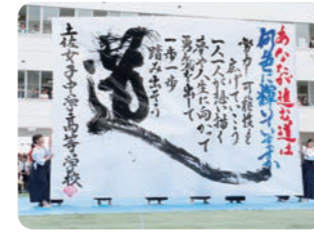 あなたが進む道は
何色に輝いていますか
努力で可能性を
広げていこう
一人一人が思い描く
夢や人生に向かって
勇気を出して
一歩一歩
踏み出そう
道
土佐女子中学高等学校